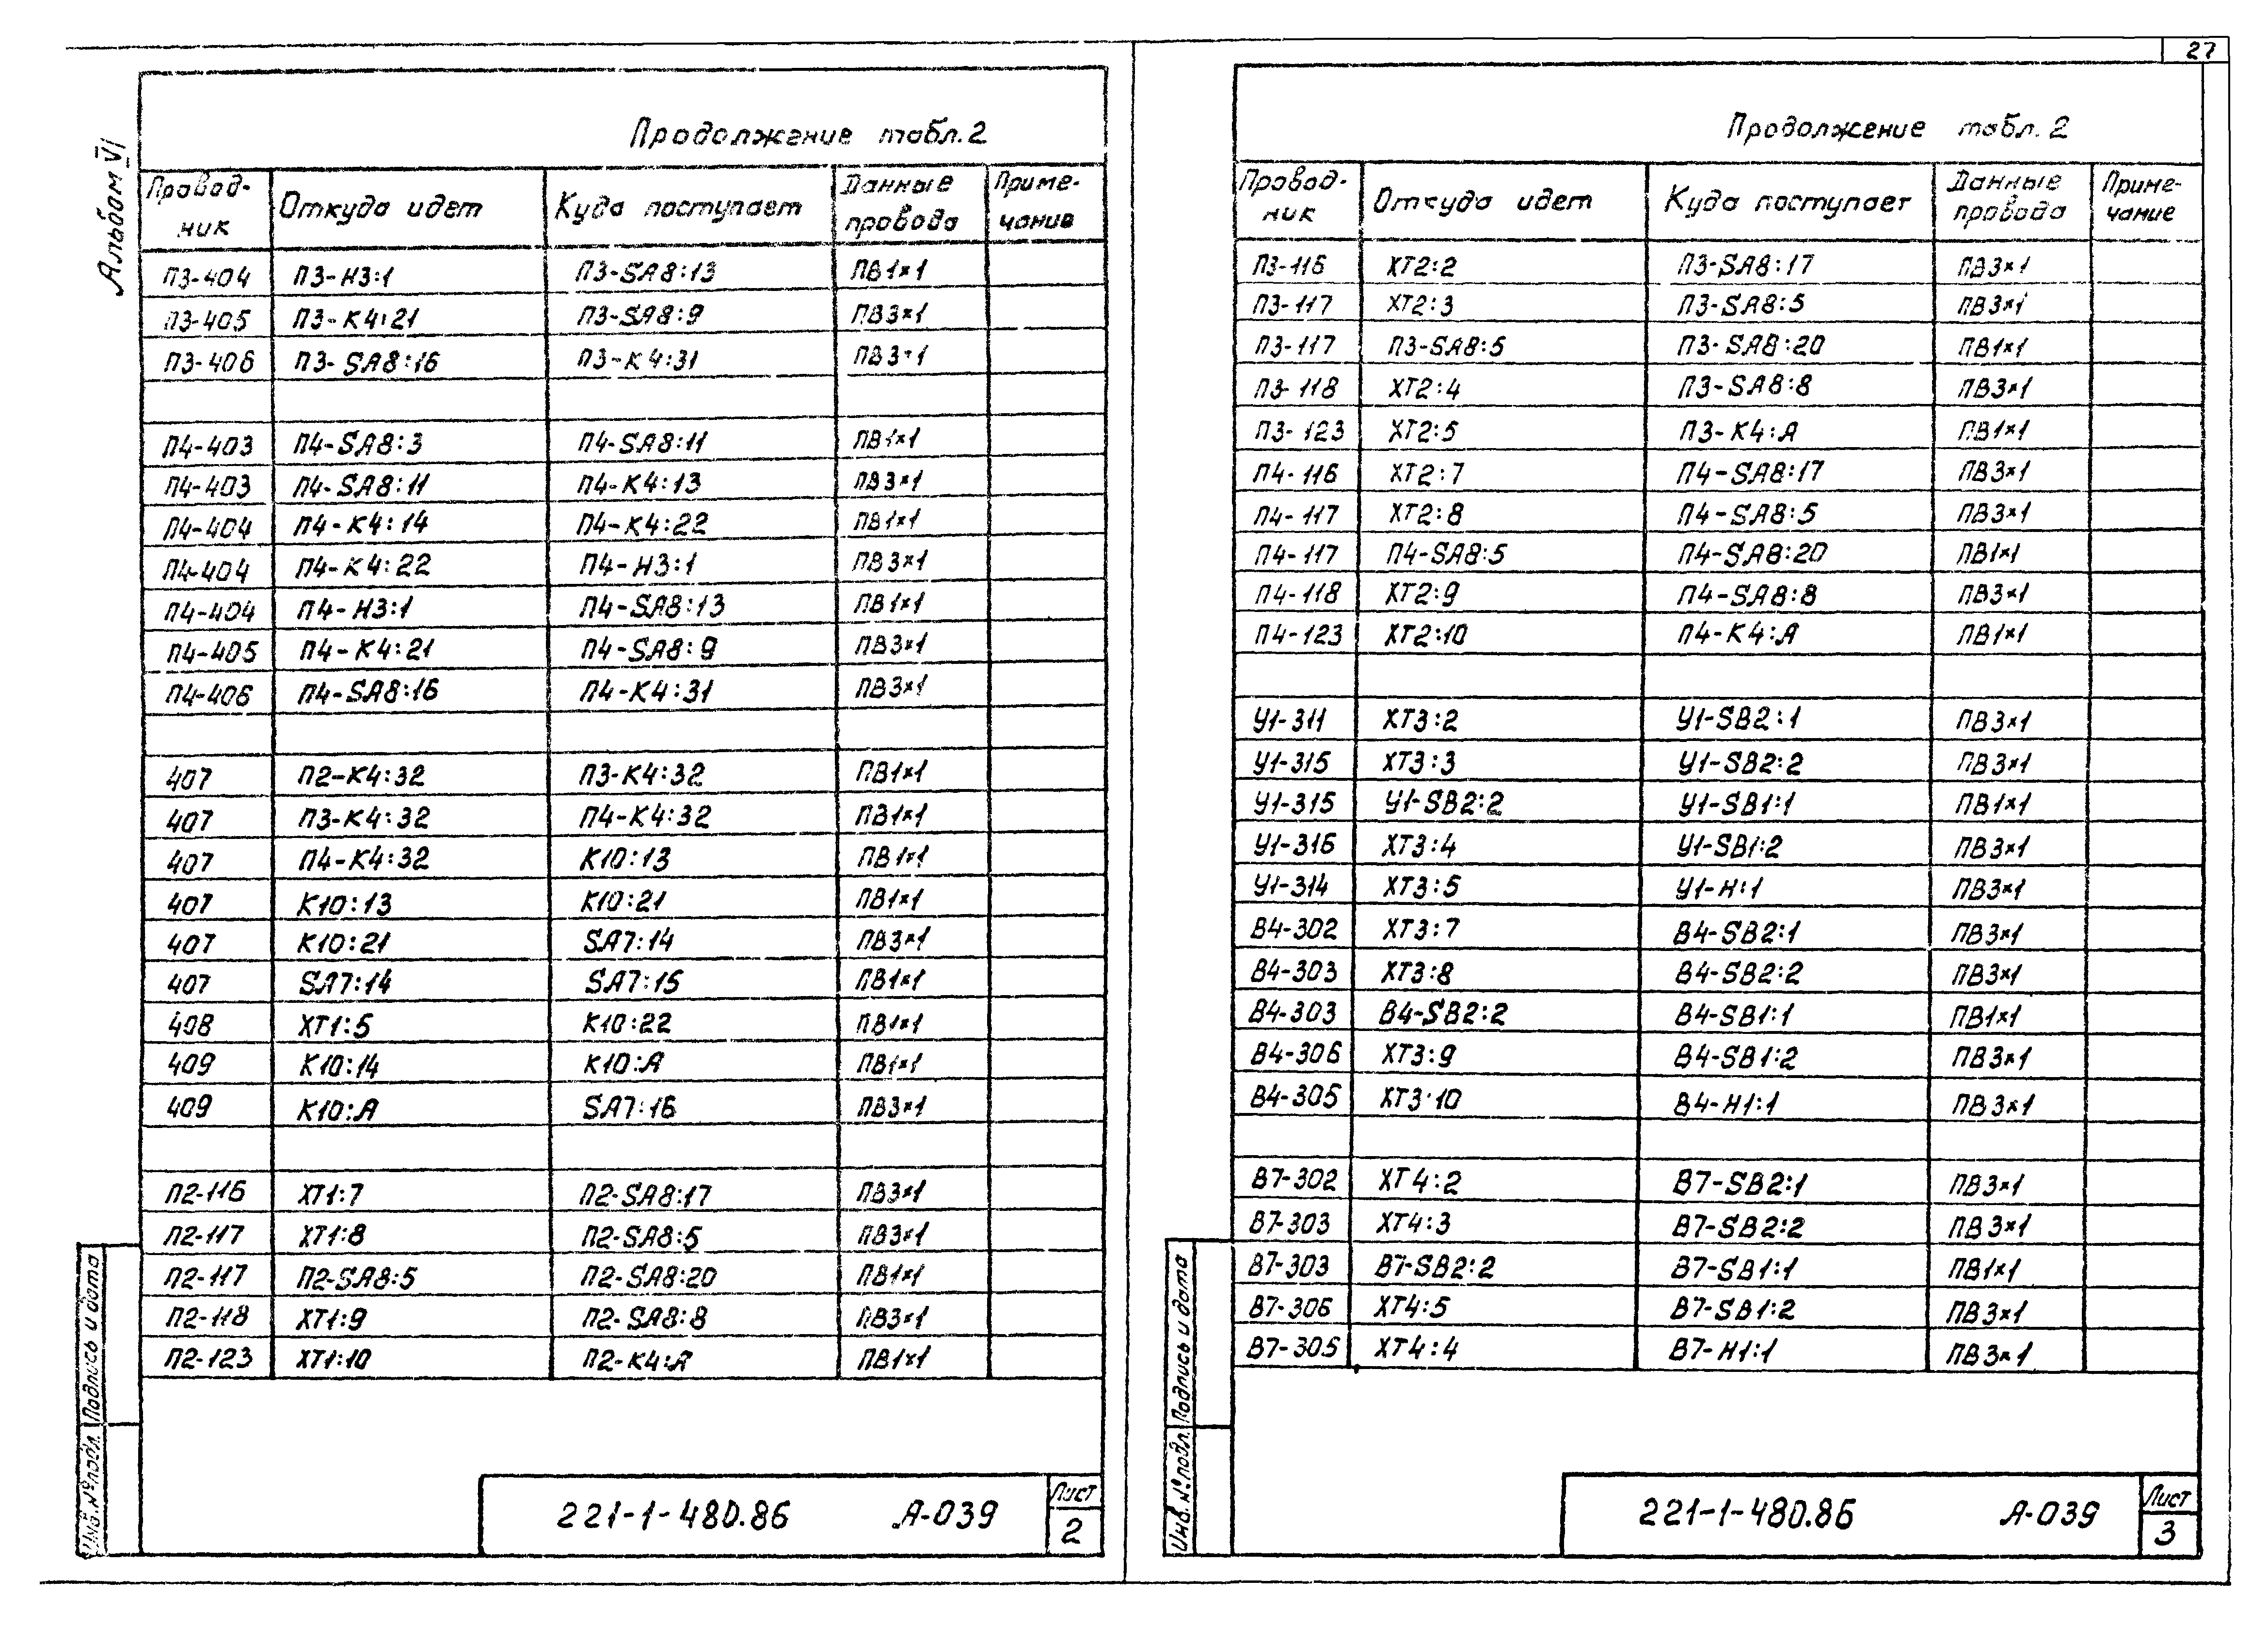 27
Альбом VI
Продолжение табл. 2
Провод-ник Откуда идет Куда поступает Данные провода Приме-чание
П3-404 П3-Н3:1 П3-SA8:13 ПВ1×1
П3-405 П3-К4:21 П3-SA8:9 ПВ3×1
П3-406 П3-SA8:16 П3-К4:31 ПВ3×1
П4-403 П4-SA8:3 П4-SA8:11 ПВ1×1
П4-403 П4-SA8:11 П4-К4:13 ПВ3×1
П4-404 П4-К4:14 П4-К4:22 ПВ1×1
П4-404 П4-К4:22 П4-Н3:1 ПВ3×1
П4-404 П4-Н3:1 П4-SA8:13 ПВ1×1
П4-405 П4-К4:21 П4-SA8:9 ПВ3×1
П4-406 П4-SA8:16 П4-К4:31 ПВ3×1
407 П2-К4:32 П3-К4:32 ПВ1×1
407 П3-К4:32 П4-К4:32 ПВ1×1
407 П4-К4:32 К10:13 ПВ1×1
407 К10:13 К10:21 ПВ1×1
407 К10:21 SA7:14 ПВ3×1
407 SA7:14 SA7:15 ПВ1×1
408 ХТ1:5 К10:22 ПВ1×1
409 К10:14 К10:А ПВ1×1
409 К10:А SA7:16 ПВ3×1
П2-116 ХТ1:7 П2-SA8:17 ПВ3×1
П2-117 ХТ1:8 П2-SA8:5 ПВ3×1
П2-117 П2-SA8:5 П2-SA8:20 ПВ1×1
П2-118 ХТ1:9 П2-SA8:8 ПВ3×1
П2-123 ХТ1:10 П2-К4:А ПВ1×1
Подпись и дата
Инв. № подл.
221-1-480.86 А-039 Лист 2
Продолжение табл. 2
Провод-ник Откуда идет Куда поступает Данные провода Приме-чание
П3-116 ХТ2:2 П3-SA8:17 ПВ3×1
П3-117 ХТ2:3 П3-SA8:5 ПВ3×1
П3-117 П3-SA8:5 П3-SA8:20 ПВ1×1
П3-118 ХТ2:4 П3-SA8:8 ПВ3×1
П3-123 ХТ2:5 П3-К4:А ПВ1×1
П4-116 ХТ2:7 П4-SA8:17 ПВ3×1
П4-117 ХТ2:8 П4-SA8:5 ПВ3×1
П4-117 П4-SA8:5 П4-SA8:20 ПВ1×1
П4-118 ХТ2:9 П4-SA8:8 ПВ3×1
П4-123 ХТ2:10 П4-К4:А ПВ1×1
У1-311 ХТ3:2 У1-SB2:1 ПВ3×1
У1-315 ХТ3:3 У1-SB2:2 ПВ3×1
У1-315 У1-SB2:2 У1-SB1:1 ПВ1×1
У1-316 ХТ3:4 У1-SB1:2 ПВ3×1
У1-314 ХТ3:5 У1-Н:1 ПВ3×1
В4-302 ХТ3:7 В4-SB2:1 ПВ3×1
В4-303 ХТ3:8 В4-SB2:2 ПВ3×1
В4-303 В4-SB2:2 В4-SB1:1 ПВ1×1
В4-306 ХТ3:9 В4-SB1:2 ПВ3×1
В4-305 ХТ3:10 В4-Н1:1 ПВ3×1
В7-302 ХТ4:2 В7-SB2:1 ПВ3×1
В7-303 ХТ4:3 В7-SB2:2 ПВ3×1
В7-303 В7-SB2:2 В7-SB1:1 ПВ1×1
В7-306 ХТ4:5 В7-SB1:2 ПВ3×1
В7-305 ХТ4:4 В7-Н1:1 ПВ3×1
Подпись и дата
Инв. № подл.
221-1-480.86 А-039 Лист 3